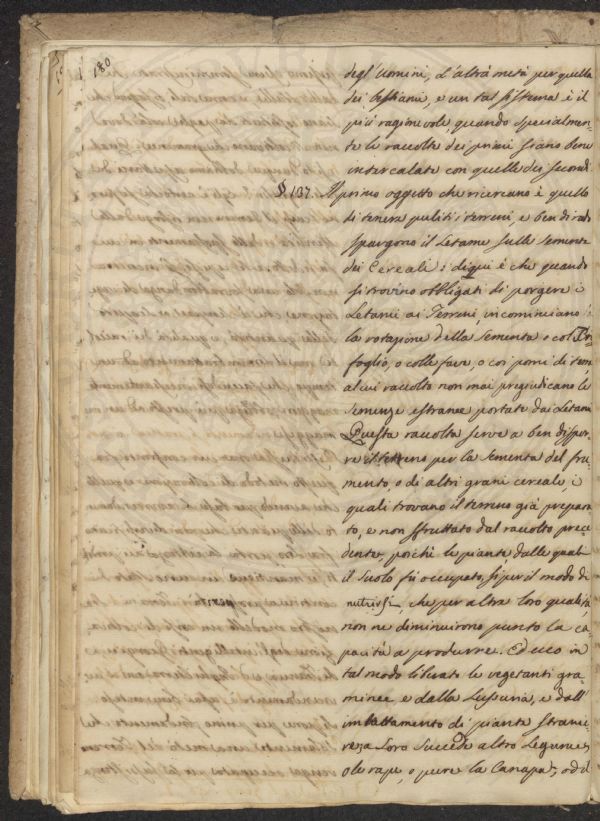 180
degl'Uomini, e l'altra metà per quella
dei bestiami, e un tal sistema è il
più ragionevole quando specialmen-
te le raccolte dei primi siano bene
intercalate con quelle dei secondi
§. 137. Il primo oggetto che ricercano è quello
di tenere puliti i terreni, e ben di rado
spargono il Letame sulle sementa
dei Cereali; di qui è che quando
si trovino obbligati di porgere i
Letami ai Terreni, incominciano
la rotazione della Sementa o col Tri-
foglio, o colle fave, o coi pomi di terra
al cui raccolto non mai pregiudicano le
Semenze estranee portate dai Letami
Questa raccolta serve a ben dispor-
re il terreno per la Sementa del fru-
mento, o di altri grani cereale, i
quali trovano il terreno già prepara-
to, e non sfruttato dal raccolto prece-
dente, poichè le piante, dalle quali
il Suolo fù occupato, sì per il modo di
nutrirsi, che per altre loro qualità,
non ne diminuirono punto la ca-
pacità a produrre. Ed ecco in
tal modo liberate le vegetanti gra-
minee e dalla Lussuria, e dall'
imbattamento di piante strani-
re; a Loro Succede altro Legume,
o le rape, o pure la Canapa, od il